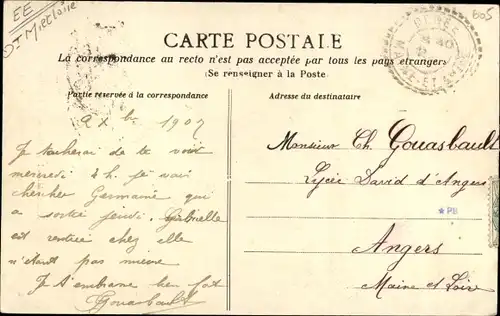 EE
Dt M et Loire
605
CARTE POSTALE
La correspondance au recto n'est pas acceptée par tous les pays étrangers
(Se renseigner à la Poste)
Partie réservée à la correspondance
Adresse du destinataire
9 Xbre 1907
Je tacherai de te voir
mercredi 4 h. je vais
chercher Germaine qui
a sortie jeudi. Gabrielle
est rentrée chez elle
n'étant pas mieux
Je t'embrasse ben fort
Gouasbault
Monsieur Ch. Gouasbault
Lycée David d'Angers
Angers
Maine et Loire
*PB